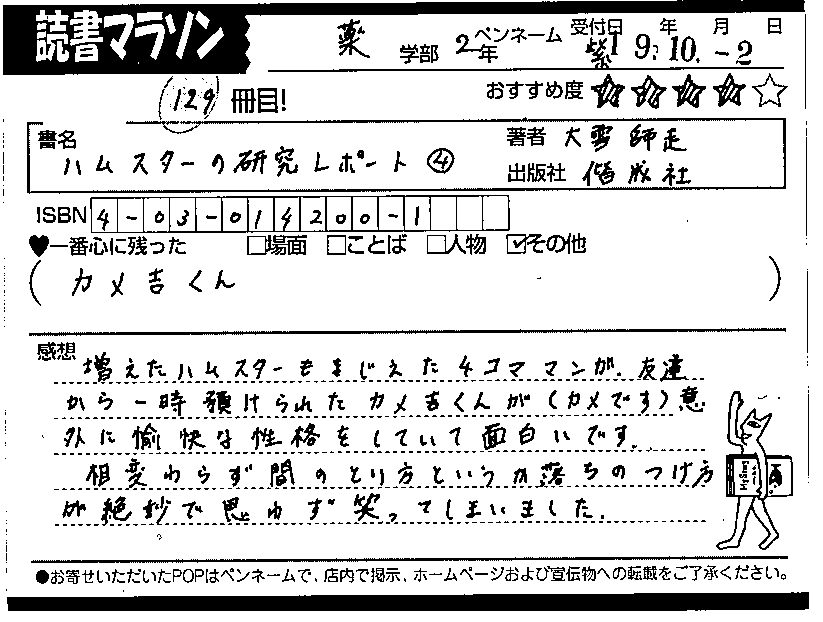 読書マラソン
薬 学部 2年 ペンネーム 紫 受付日 19年10月-2日
129 冊目!
おすすめ度 ★★★★☆
書名 ハムスターの研究レポート④
著者 大雪師走
出版社 偕成社
ISBN 4-03-014200-1
♥一番心に残った □場面 □ことば □人物 ☑その他
(カメ吉くん)
感想
増えたハムスターもまじえた4コママンガ。友達
から一時預けられたカメ吉くんが(カメです)意
外に愉快な性格をしていて面白いです。
相変わらず間のとり方というか落ちのつけ方
が絶妙で思わず笑ってしまいました。
●お寄せいただいたPOPはペンネームで、店内で掲示、ホームページおよび宣伝物への転載をご了承ください。